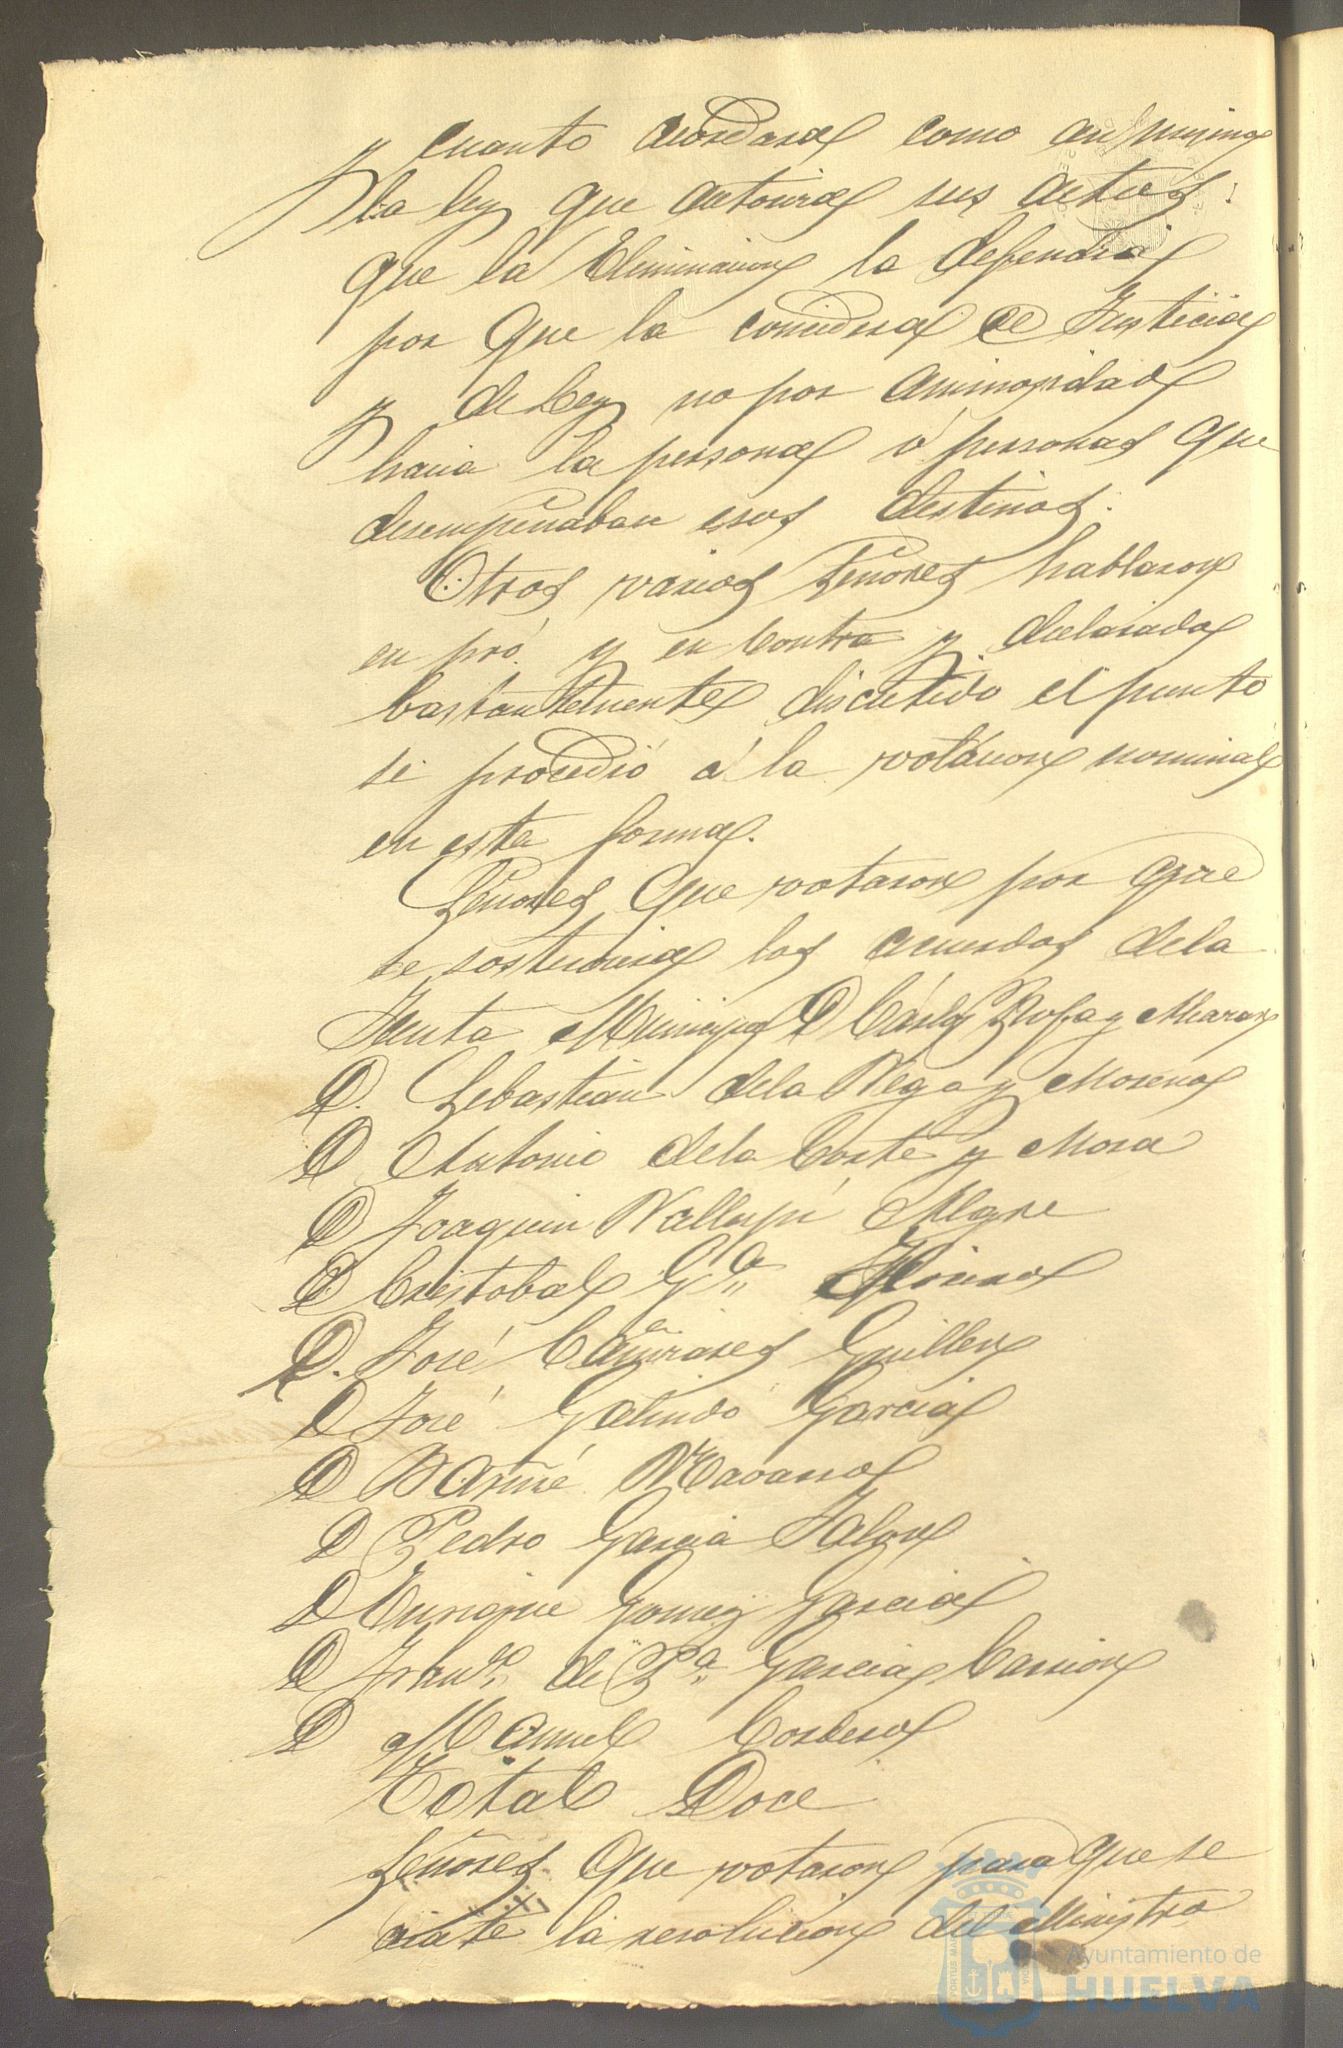 cuanto acordara como asi mismo
y la ley que autoriza sus actos:
que la Eliminacion la defendia
por que la considera de Justicia
y de Ley no por animosidad
hacia la persona ó personas que
desempeñaban esos destinos.
Otros varios Señores hablaron
en pró y en contra y declarado
bastantemente discutido el punto
se procedió á la votacion nominal
en esta forma.
Señores que votaron por que
se sostuviera los acuerdos dela
Junta Municipal D Cárlos y
D. Sebastian dela Vega y Moreno
D Antonio dela Corte y Mora
D Joaquin Alegre
D Cristobal G.ª
D. José Cañizares Guillen
D José Galindo Garcia
D Navarro
D Pedro Garcia Jalon
D Enrique Gomez Garcia
D Fran.co de P.ª Garcia Carrion
D Manuel Cordero
Total Doce
Señores que votaron para que se
acate la resolucion del Ministro
Ayuntamiento de
HUELVA